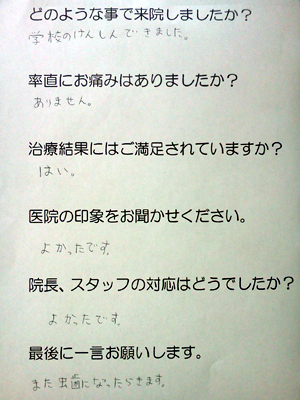 どのような事で来院しましたか？
学校のけんしんできました。
率直にお痛みはありましたか？
ありません。
治療結果にはご満足されていますか？
はい。
医院の印象をお聞かせください。
よかったです。
院長、スタッフの対応はどうでしたか？
よかったです。
最後に一言お願いします。
また虫歯になったらきます。